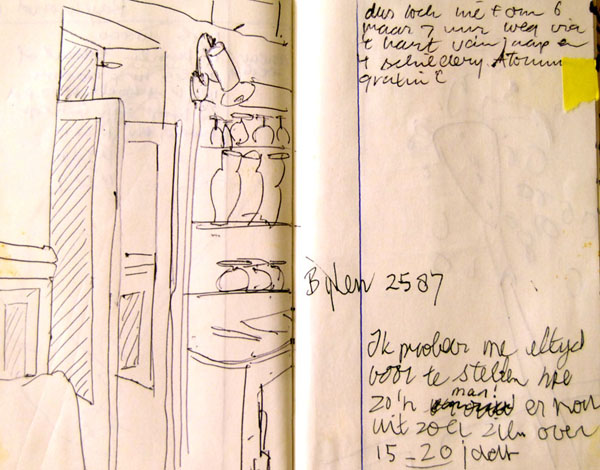 dus toch niet om 6
maar 7 uur weg via
't hart van Jaap en
't schildery. Atoom
gratin
Bylen 2587
Ik probeer me altyd
voor te stellen hoe
man!
zo'n er nou
uit zou zien over
15-20 jaar